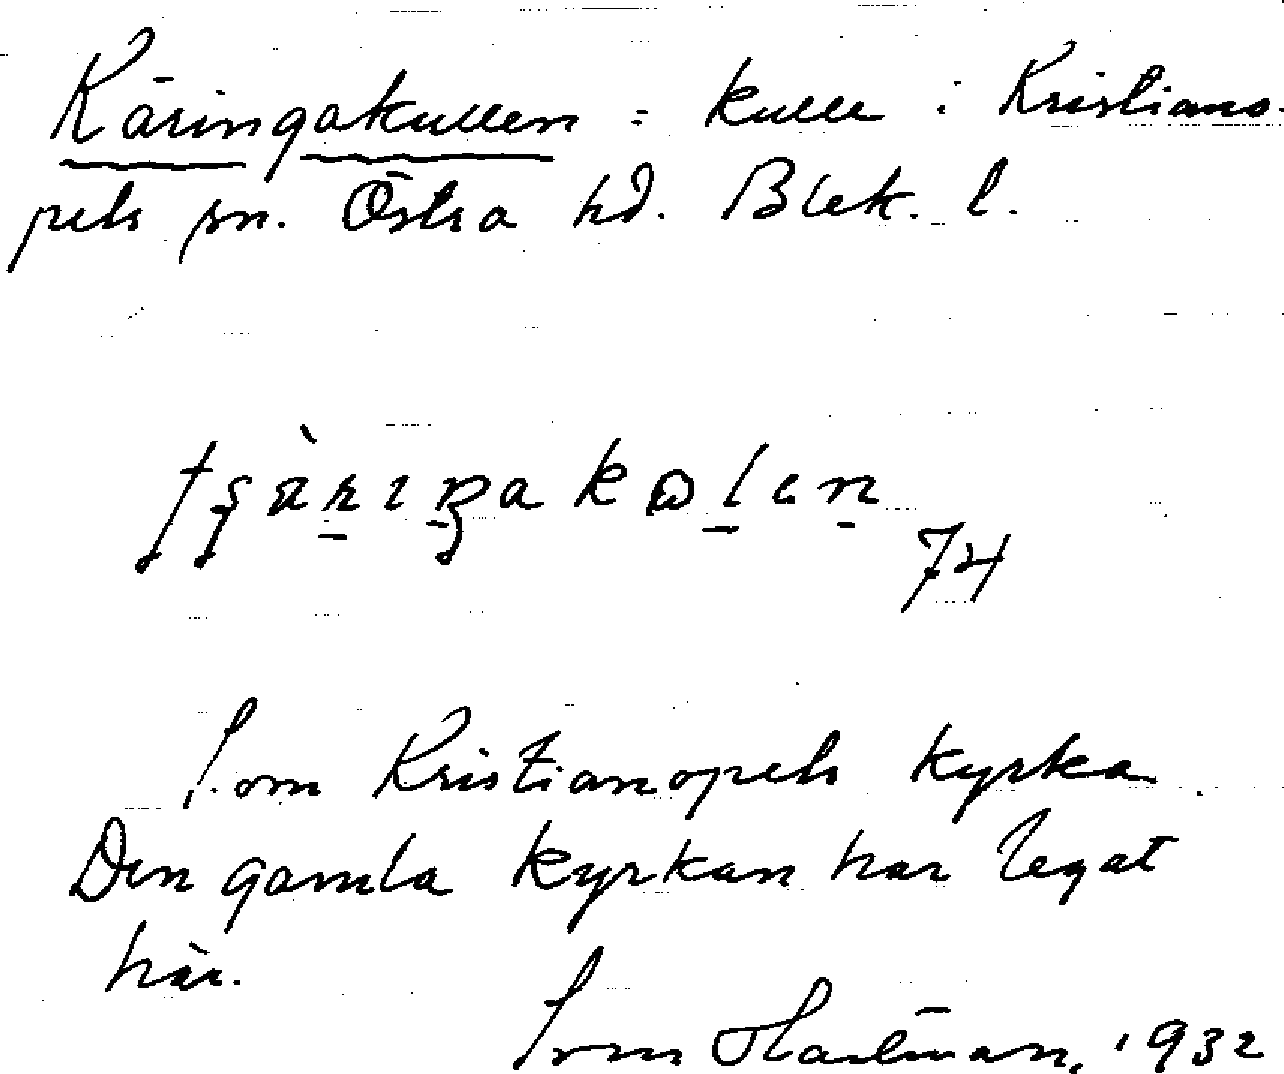 Käringakullen : kulle i Kristiano-
pels sn. Östra hd. Blek. l.
74
S. om Kristianopels kyrka.
Den gamla kyrkan har legat
här.
Hartman, 1932